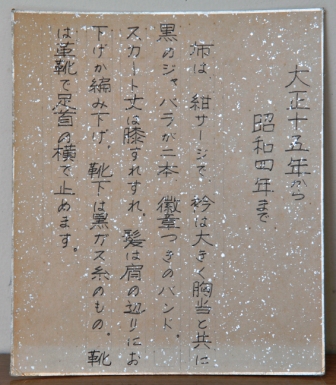 大正十五年から
昭和四年まで
布は紺サージで、衿は大きく胸当と共に
黒のジャバラが二本、徽章つきのバンド。
スカート丈は膝すれすれ。髪は肩の辺りにお
下げか編み下げ、靴下は黒ガス糸のもの、靴
は革靴で足首の横で止めます。